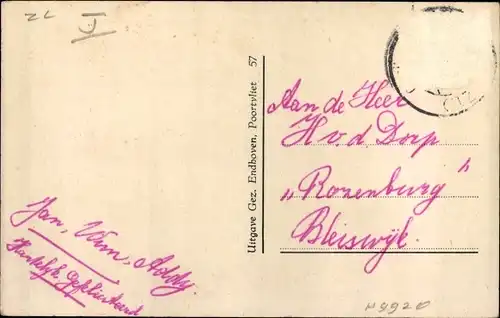 ZL
Uitgave Gez. Endhoven, Poortvliet 57
Aan de Heer
H.v.d Dorp
„Rozenburg"
Bleiswijk.
Jan, Wim, Addy.
Hartelijk Gefeliciteerd